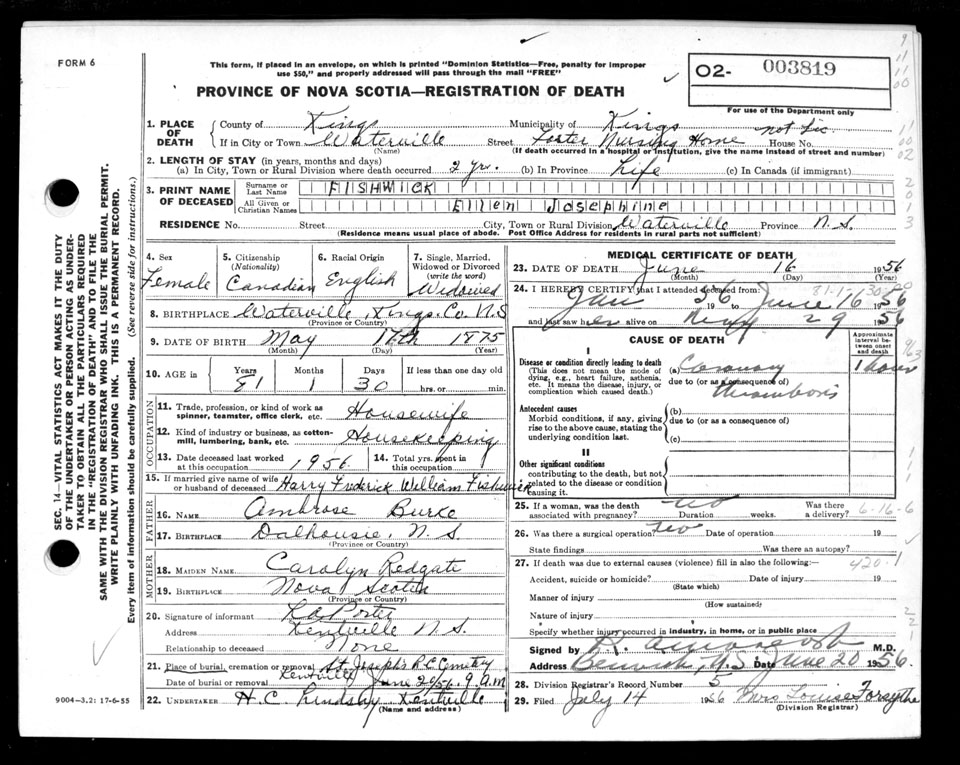 FORM 6
This form, if placed in an envelope, on which is printed "Dominion Statistics—Free, penalty for improper
use $50," and properly addressed will pass through the mail "FREE"
PROVINCE OF NOVA SCOTIA—REGISTRATION OF DEATH
02- 003819
For use of the Department only
1. PLACE OF DEATH
County of Kings Municipality of Kings not Lic
If in City or Town Waterville Street Foster Nursing Home House No.
(Name) (If death occurred in a hospital or institution, give the name instead of street and number)
2. LENGTH OF STAY (in years, months and days)
(a) In City, Town or Rural Division where death occurred 2 yr. (b) In Province Life (c) In Canada (if immigrant)
3. PRINT NAME OF DECEASED
Surname or Last Name FISHWICK
All Given or Christian Names Ellen Josephine
RESIDENCE No. Street City, Town or Rural Division Waterville Province N.S.
(Residence means usual place of abode. Post Office Address for residents in rural parts not sufficient)
4. Sex
Female
5. Citizenship (Nationality)
Canadian
6. Racial Origin
English
7. Single, Married, Widowed or Divorced (write the word)
Widowed
8. BIRTHPLACE Waterville, Kings Co. N.S
(Province or Country)
9. DATE OF BIRTH May 17th 1875
(Month) (Day) (Year)
10. AGE
Years Months Days If less than one day old
81 1 30 hrs. or min.
OCCUPATION
11. Trade, profession, or kind of work as spinner, teamster, office clerk, etc. Housewife
12. Kind of industry or business, as cotton-mill, lumbering, bank, etc. Housekeeping
13. Date deceased last worked at this occupation 1956
14. Total yrs. spent in this occupation
15. If married give name of wife or husband of deceased Harry Frederick William Fishwick
FATHER
16. NAME Ambrose Burke
17. BIRTHPLACE Dalhousie, N.S.
(Province or Country)
MOTHER
18. MAIDEN NAME Carolyn Redgate
19. BIRTHPLACE Nova Scotia
(Province or Country)
20. Signature of informant Porter
Address Kentville N.S.
Relationship to deceased None
21. Place of burial, cremation or removal St. Joseph's R C Cemetry Kentville
Date of burial or removal June 20/56. 9 A.M
22. UNDERTAKER H.C. Lindsay Kentville
(Name and address)
MEDICAL CERTIFICATE OF DEATH
23. DATE OF DEATH June 16 1956
(Month) (Day) (Year)
24. I HEREBY CERTIFY that I attended deceased from:
Jan 56 to June 16 1956
and last saw her alive on May 29 1956
CAUSE OF DEATH
Approximate interval between onset and death
I
Disease or condition directly leading to death
(This does not mean the mode of dying, e.g., heart failure, asthenia, etc. It means the disease, injury, or complication which caused death.)
(a) Coronary 1 hour
due to (or as a consequence of) thrombosis
Antecedent causes
Morbid conditions, if any, giving rise to the above cause, stating the underlying condition last.
(b)
due to (or as a consequence of)
(c)
II
Other significant conditions
contributing to the death, but not related to the disease or condition causing it.
25. If a woman, was the death associated with pregnancy? no Duration weeks. Was there a delivery? 6-16-6
26. Was there a surgical operation? no Date of operation 19
State findings Was there an autopsy?
27. If death was due to external causes (violence) fill in also the following: 420.1
Accident, suicide or homicide? Date of injury 19
(State which)
Manner of injury
(How sustained)
Nature of injury
Specify whether injury occurred in industry, in home, or in public place
Signed by R. M.D.
Address Berwick, N.S Date June 20 1956.
28. Division Registrar's Record Number 5
29. Filed July 14 1956 Mrs Louise Forsythe
(Division Registrar)
SEC. 14—VITAL STATISTICS ACT MAKES IT THE DUTY
OF THE UNDERTAKER OR PERSON ACTING AS UNDER-
TAKER TO OBTAIN ALL THE PARTICULARS REQUIRED
IN THE "REGISTRATION OF DEATH" AND TO FILE THE
SAME WITH THE DIVISION REGISTRAR WHO SHALL ISSUE THE BURIAL PERMIT.
WRITE PLAINLY WITH UNFADING INK. THIS IS A PERMANENT RECORD.
Every item of information should be carefully supplied. (See reverse side for instructions.)
9004—3.2: 17-6-55